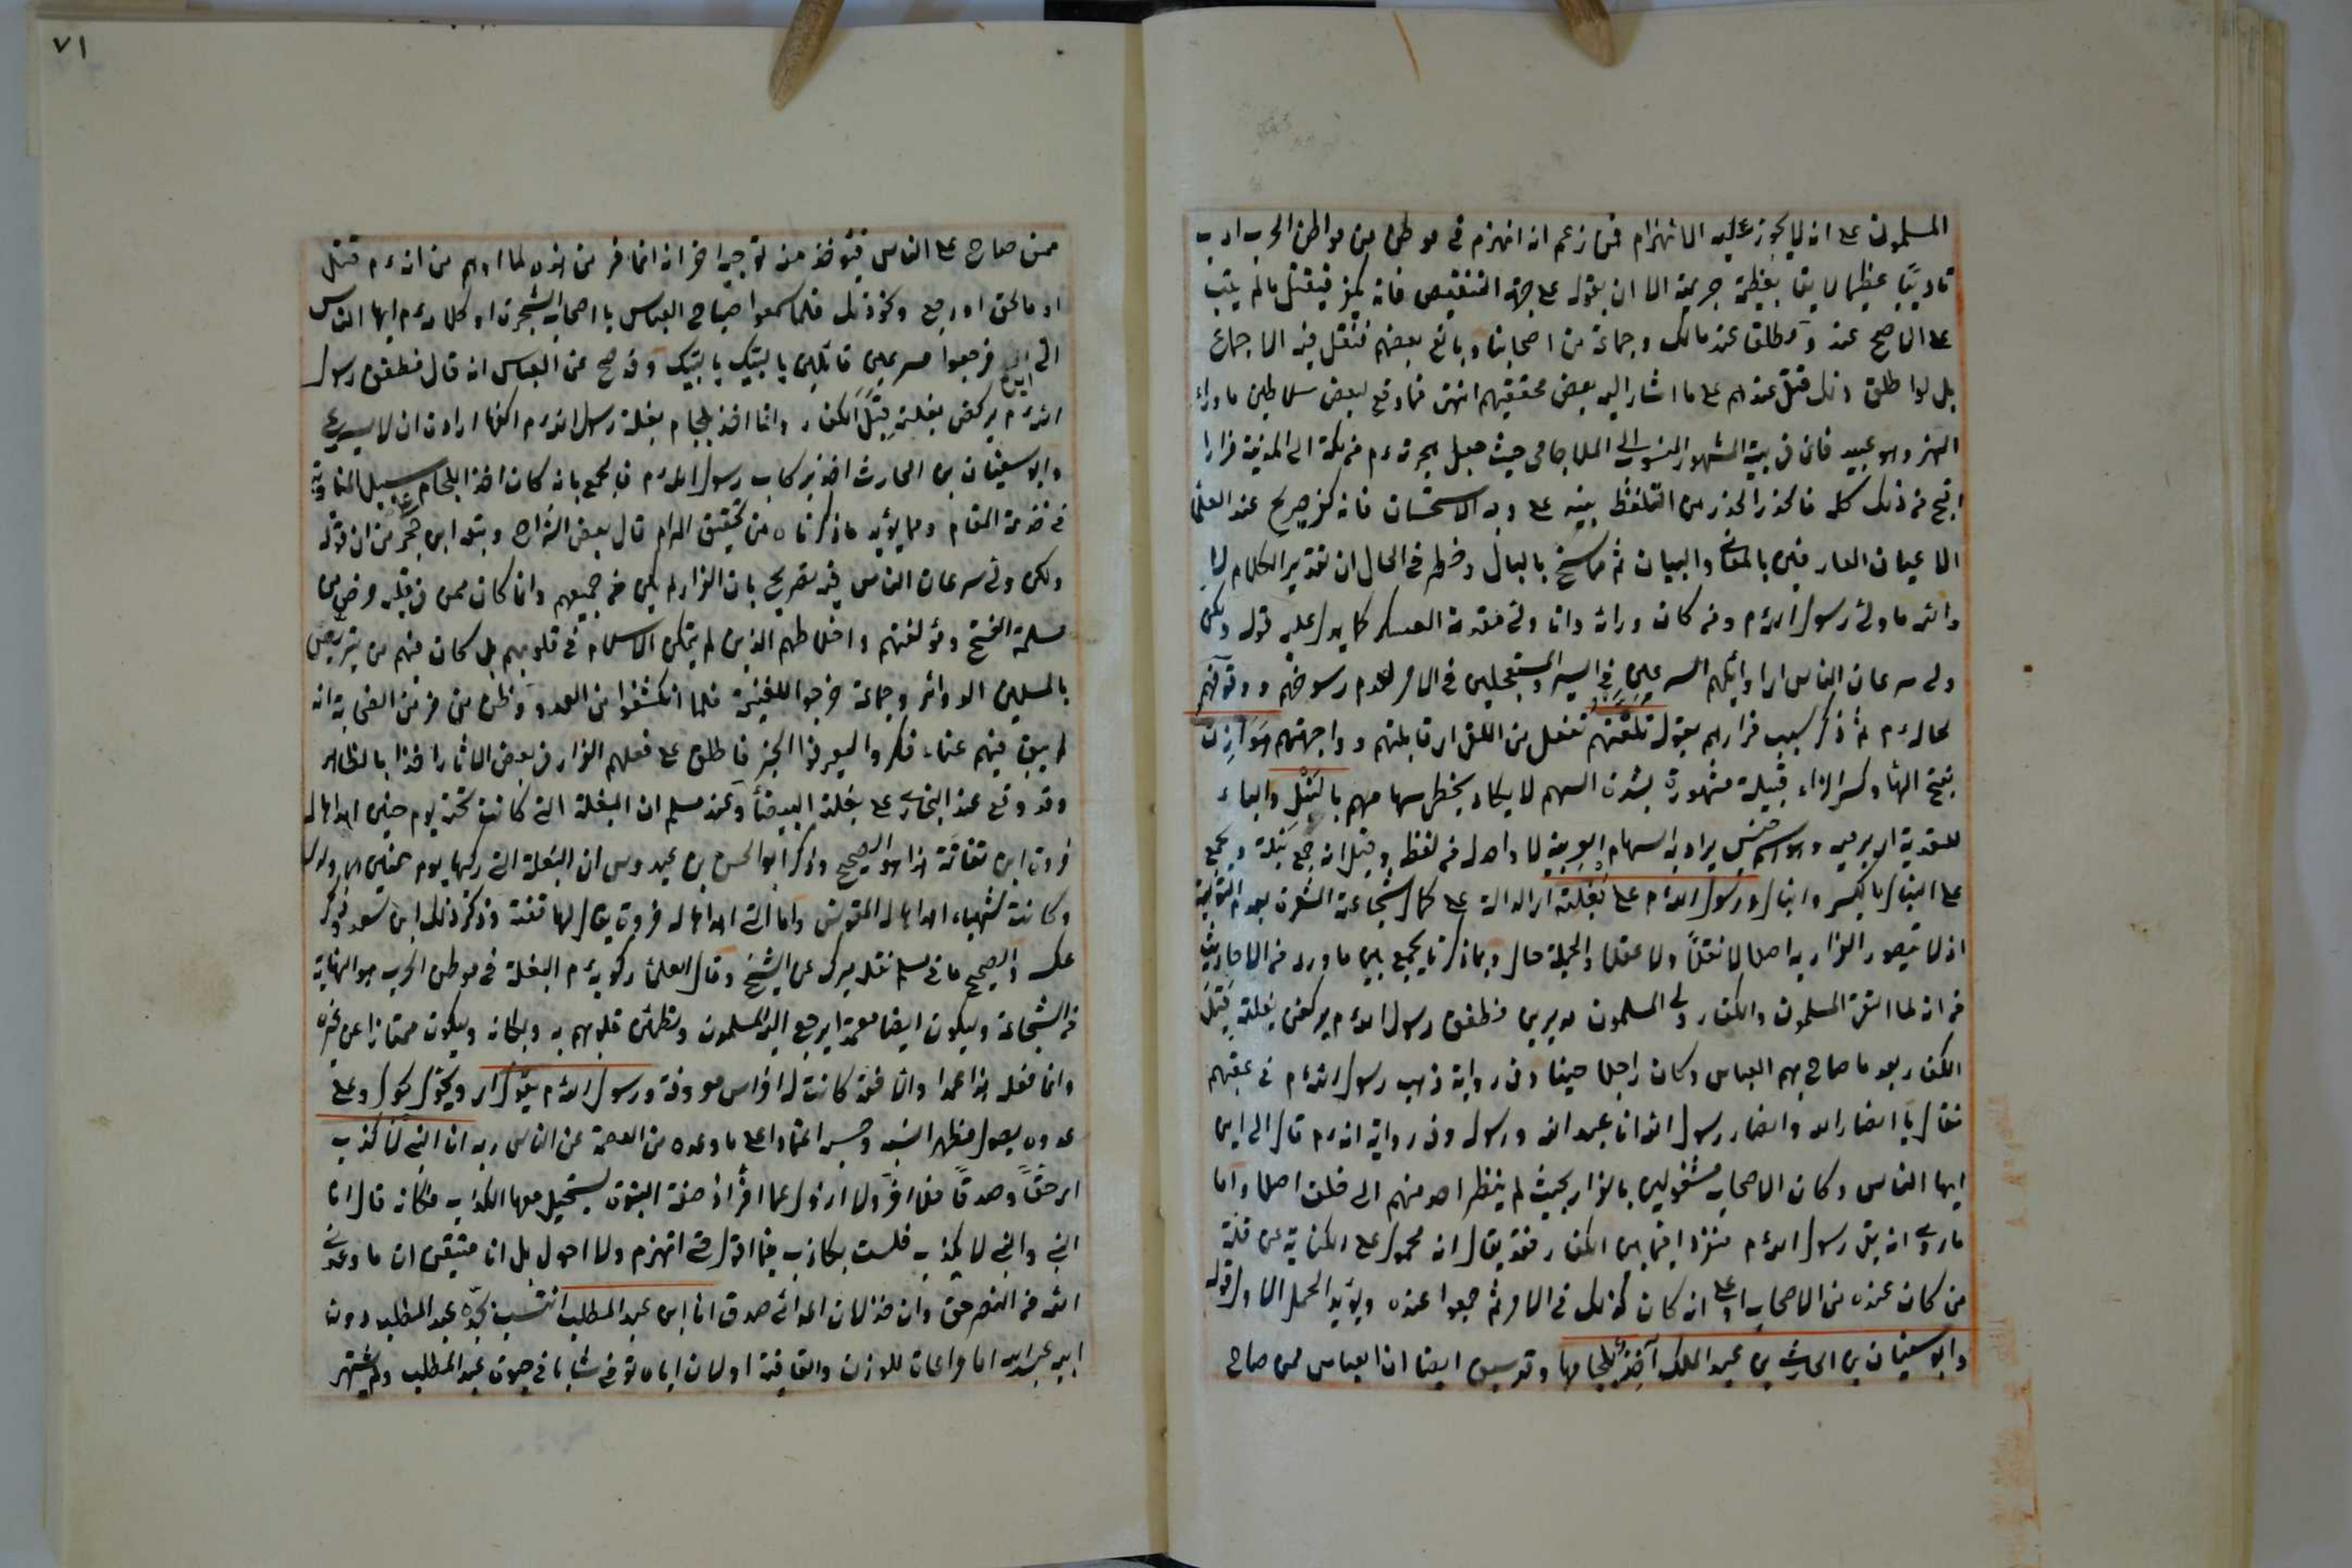 المسلمون على انه لا يجوز عليه الانهزام فمن زعم انه انهزم في موطن من مواطن الحرب ادب
تاديبا عظيما لايقا بعظيم جريمته الا ان يقوله على جهة التنقيص فانه يكفر فيقتل مالم يتب
على الاصح عندنا ومطلقا عند مالك وجماعة من اصحابنا وبالغ بعضهم فنقل فيه الاجماع
بل لو اطلق ذلك قتل عندهم على ما اشار اليه بعض محققيهم انتهى فما وقع لبعض سلاطين ماوراء
النهر وهو عبيد خان في بيته المشهور المنسوب الى الملا جامي حيث جعل هجرته ءم من مكة الى المدينة فرارا
اقبح من ذلك كله فالحذر الحذر من التلفظ ببيته على وجه الاستحسان فانه كفر صريح عند العلماء
الاعيان العارفين بالمعاني والبيان ثم مما سنح بالبال وخطر في الحال ان تقدير الكلام لا
والله ما ولى رسول الله ءم ومن كان وراءه وانما ولى مقدمة العسكر كما يدل عليه قوله ولكن
ولى سرعان الناس اي اوائلهم المسرعين في السير والمستعجلين في الامر لعدم رسوخهم ووقوفهم
بحاله ءم ثم ذكر سبب فرارهم بقوله تلقتهم تفعل من اللقى اي قابلتهم وواجهتهم هوازن
بفتح الهاء وكسر الزاء قبيلة مشهورة بشدة السهم لا يكاد يخطئ سهامهم بالنبل والباء
للتعدية اي برميه وهو اسم جنس يراد به السهام العربية لا واحد له من لفظه وقيل انه جمع نبلة ويجمع
على النبال بالكسر وانبال ورسول الله ءم على بغلته اي الدالة على كمال شجاعته المشعرة بعدم التولية
اذ لا يتصور الفرار بها اصلا لا نقلا ولا عقلا والجملة حال وبما ذكرنا يجمع بين ما ورد من الاحاديث
من انه لما التقى المسلمون والكفار ولى المسلمون مدبرين فطفق رسول الله ءم يركض بغلته قبل
الكفار بعد ما صاح بهم العباس وكان رجلا صيتا وفي رواية ذهب رسول الله ءم في عقبهم
فقال يا انصار الله وانصار رسول الله انا عبد الله ورسوله وفي رواية انه ءم قال الى اين
ايها الناس وكان الاصحاب مشغولين بالفرار بحيث لم ينظر احد منهم الى خلف اصلا واما
ما روي انه بقي رسول الله ءم منفردا فيما بين الكفار فقد يقال انه محمول على الكناية عن قلة
من كان عنده من الاصحاب او على انه كان كذلك في الامر ثم جمعوا عنده ويؤيد الحمل الاول قوله
وابو سفيان بن الحارث بن عبد الملك آخذ بلجامها وقد سبق ايضا ان العباس ممن صاح
٧١
ممن صاح على الناس فيؤخذ منه توجيه اخر انه انما فر من فر لما اوهم من انه ءم قتل
او مالحق او رجع ونحو ذلك فلما سمعوا صياح العباس يا اصحاب الشجرة او كلامه ءم ايها الناس
الى اين فرجعوا مسرعين قائلين يا لبيك يا لبيك وقد صح عن العباس انه قال فطفق رسول
الله ءم يركض بغلته قبل الكفار وانا اخذ بلجام بغلة رسول الله ءم اكفها ارادة ان لا يسرع
وابو سفيان بن الحارث اخذ بركاب رسول الله ءم فالجمع بانه كان اخذ اللجام على سبيل المناوبة
في خدمة المقام ومما يؤيد ما ذكرناه من تحقيق المرام قال بعض الشراح وتبعه ابن حجر من ان قوله
ولكن ولى سرعان الناس فيه تصريح بان الفرار لم يكن من جميعهم وانما كان ممن في قلبه مرض من
مسلمة الفتح ومؤلفتهم واخلاطهم الذين لم يتمكن الاسلام في قلوبهم بل كان فيهم من يتربص
بالمسلمين الدوائر وجماعة خرجوا للغنيمة فلما انكشفوا من العدو وظن من فر من الصحابة انه
لم يبق فيهم غناء فكروا ليعرفوا الخبر فاطلق على فعلهم الفرار في بعض الاثار اخذا بالظاهر
وقد وقع عند البخاري على بغلته البيضاء وعند مسلم ان البغلة التي كانت تحته يوم حنين اهداها له
فروة ابن نفاثة هذا هو الصحيح وذكر ابو الحسن بن عبدوس ان البغلة التي ركبها يوم حنين هي دلدل
وكانت شهباء اهداها له المقوقس واما التي اهداها له فروة يقال لها فضة وذكر ذلك ابن سعد وذكر
عكسه والصحيح ما في مسلم نقله ميرك عن الشيخ وقال العلماء ركوبه ءم البغلة في موطن الحرب هو النهاية
في الشجاعة وليكون ايضا معتمدا يرجع اليه المسلمون وتطمئن قلوبهم به وبمكانه وليكون ممتازا عن غيره
وانما فعل هذا عمدا والا فقد كانت له افراس معروفة ورسول الله ءم يقول اي ويجول كحول وعلى
عدوه يصول مظهر النسبه وحسبه اعتمادا على ما وعده من العصمة عن الناس ربه انا النبي لا كذب
اي حقا وصدقا فلا افر ولا ازول عما اقر اذ صفة النبوة يستحيل معها الكذاب فكانه قال انا
النبي والنبي لا يكذب فلست بكاذب فيما اقول حتى انهزم ولا احول بل انا متيقن ان ما وعدني
الله من النصر حق وان خذلان اعدائي صدق انا ابن عبد المطلب انتسب لجده عبد المطلب دون
ابيه عبد الله اما مراعاة للوزن والقافية او لان اباه توفي شابا في حيوة عبد المطلب ولم يشتهر